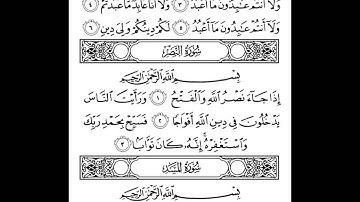 وَلَآ أَنتُمْ عَٰبِدُونَ مَآ أَعْبُدُ ٣ وَلَآ أَنَا۠ عَابِدٌ مَّا عَبَدتُّمْ ٤
وَلَآ أَنتُمْ عَٰبِدُونَ مَآ أَعْبُدُ ٥ لَكُمْ دِينُكُمْ وَلِىَ دِينِ ٦
سُورَةُ النَّصْرِ
بِسْمِ ٱللَّهِ ٱلرَّحْمَٰنِ ٱلرَّحِيمِ
إِذَا جَآءَ نَصْرُ ٱللَّهِ وَٱلْفَتْحُ ١ وَرَأَيْتَ ٱلنَّاسَ
يَدْخُلُونَ فِى دِينِ ٱللَّهِ أَفْوَاجًا ٢ فَسَبِّحْ بِحَمْدِ رَبِّكَ
وَٱسْتَغْفِرْهُ إِنَّهُۥ كَانَ تَوَّابًۢا ٣
سُورَةُ المَسَد
بِسْمِ ٱللَّهِ ٱلرَّحْمَٰنِ ٱلرَّحِيمِ